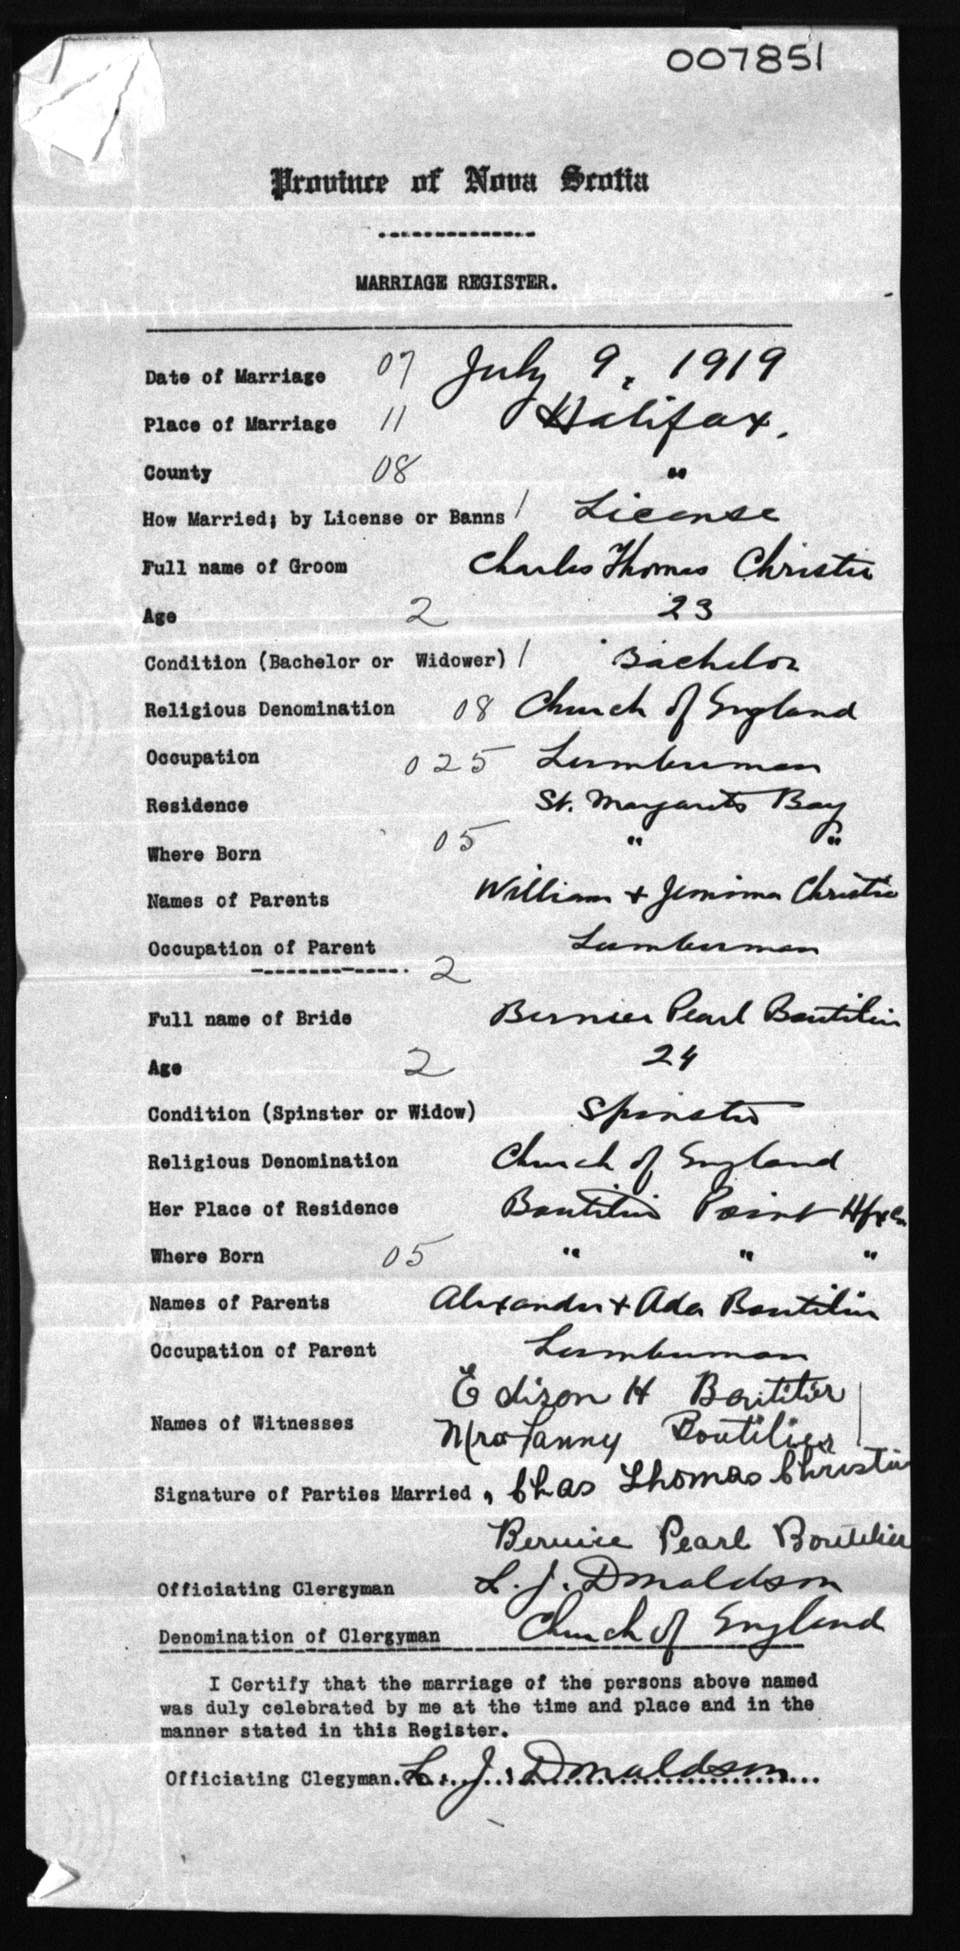 007851
Province of Nova Scotia
MARRIAGE REGISTER.
Date of Marriage 07 July 9, 1919
Place of Marriage 11 Halifax.
County 08 "
How Married; by License or Banns / License
Full name of Groom Charles Thomas Christie
Age 2 23
Condition (Bachelor or Widower) / Bachelor
Religious Denomination 08 Church of England
Occupation 025 Lumberman
Residence St. Margarets Bay
Where Born 05 " "
Names of Parents William + Jemima Christie
Occupation of Parent Lumberman
2
Full name of Bride Bernice Pearl Boutilier
Age 2 24
Condition (Spinster or Widow) Spinster
Religious Denomination Church of England
Her Place of Residence Boutilier Point Hfx Co.
Where Born 05 " " "
Names of Parents Alexander + Ada Boutilier
Occupation of Parent Lumberman
Edison H Boutilier
Names of Witnesses Mrs Fanny Boutilier
Signature of Parties Married, Chas Thomas Christie
Bernice Pearl Boutilier
Officiating Clergyman L. J. Donaldson
Denomination of Clergyman Church of England
I Certify that the marriage of the persons above named
was duly celebrated by me at the time and place and in the
manner stated in this Register.
Officiating Clegyman. L. J. Donaldson